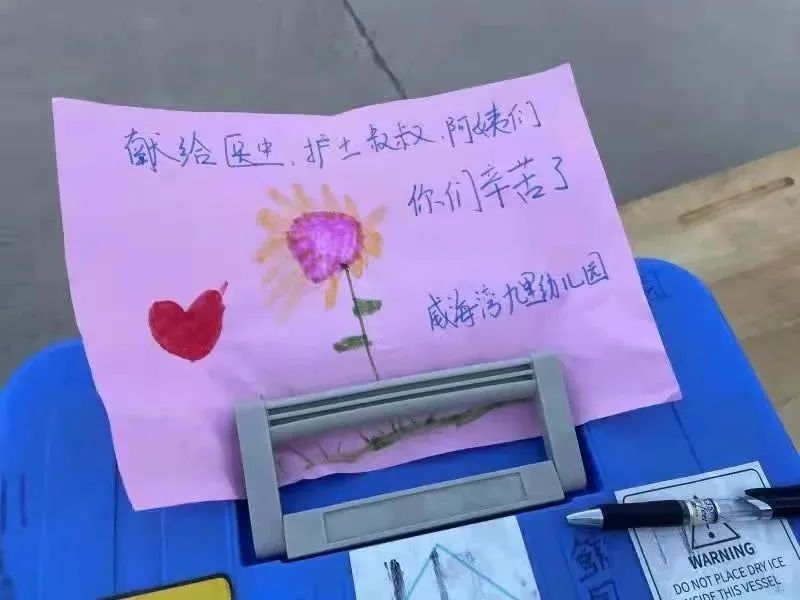 献给医生、护士叔叔、阿姨们
你们辛苦了
威海湾九里幼儿园
WARNING
DO NOT PLACE DRY ICE
INSIDE THIS VESSEL